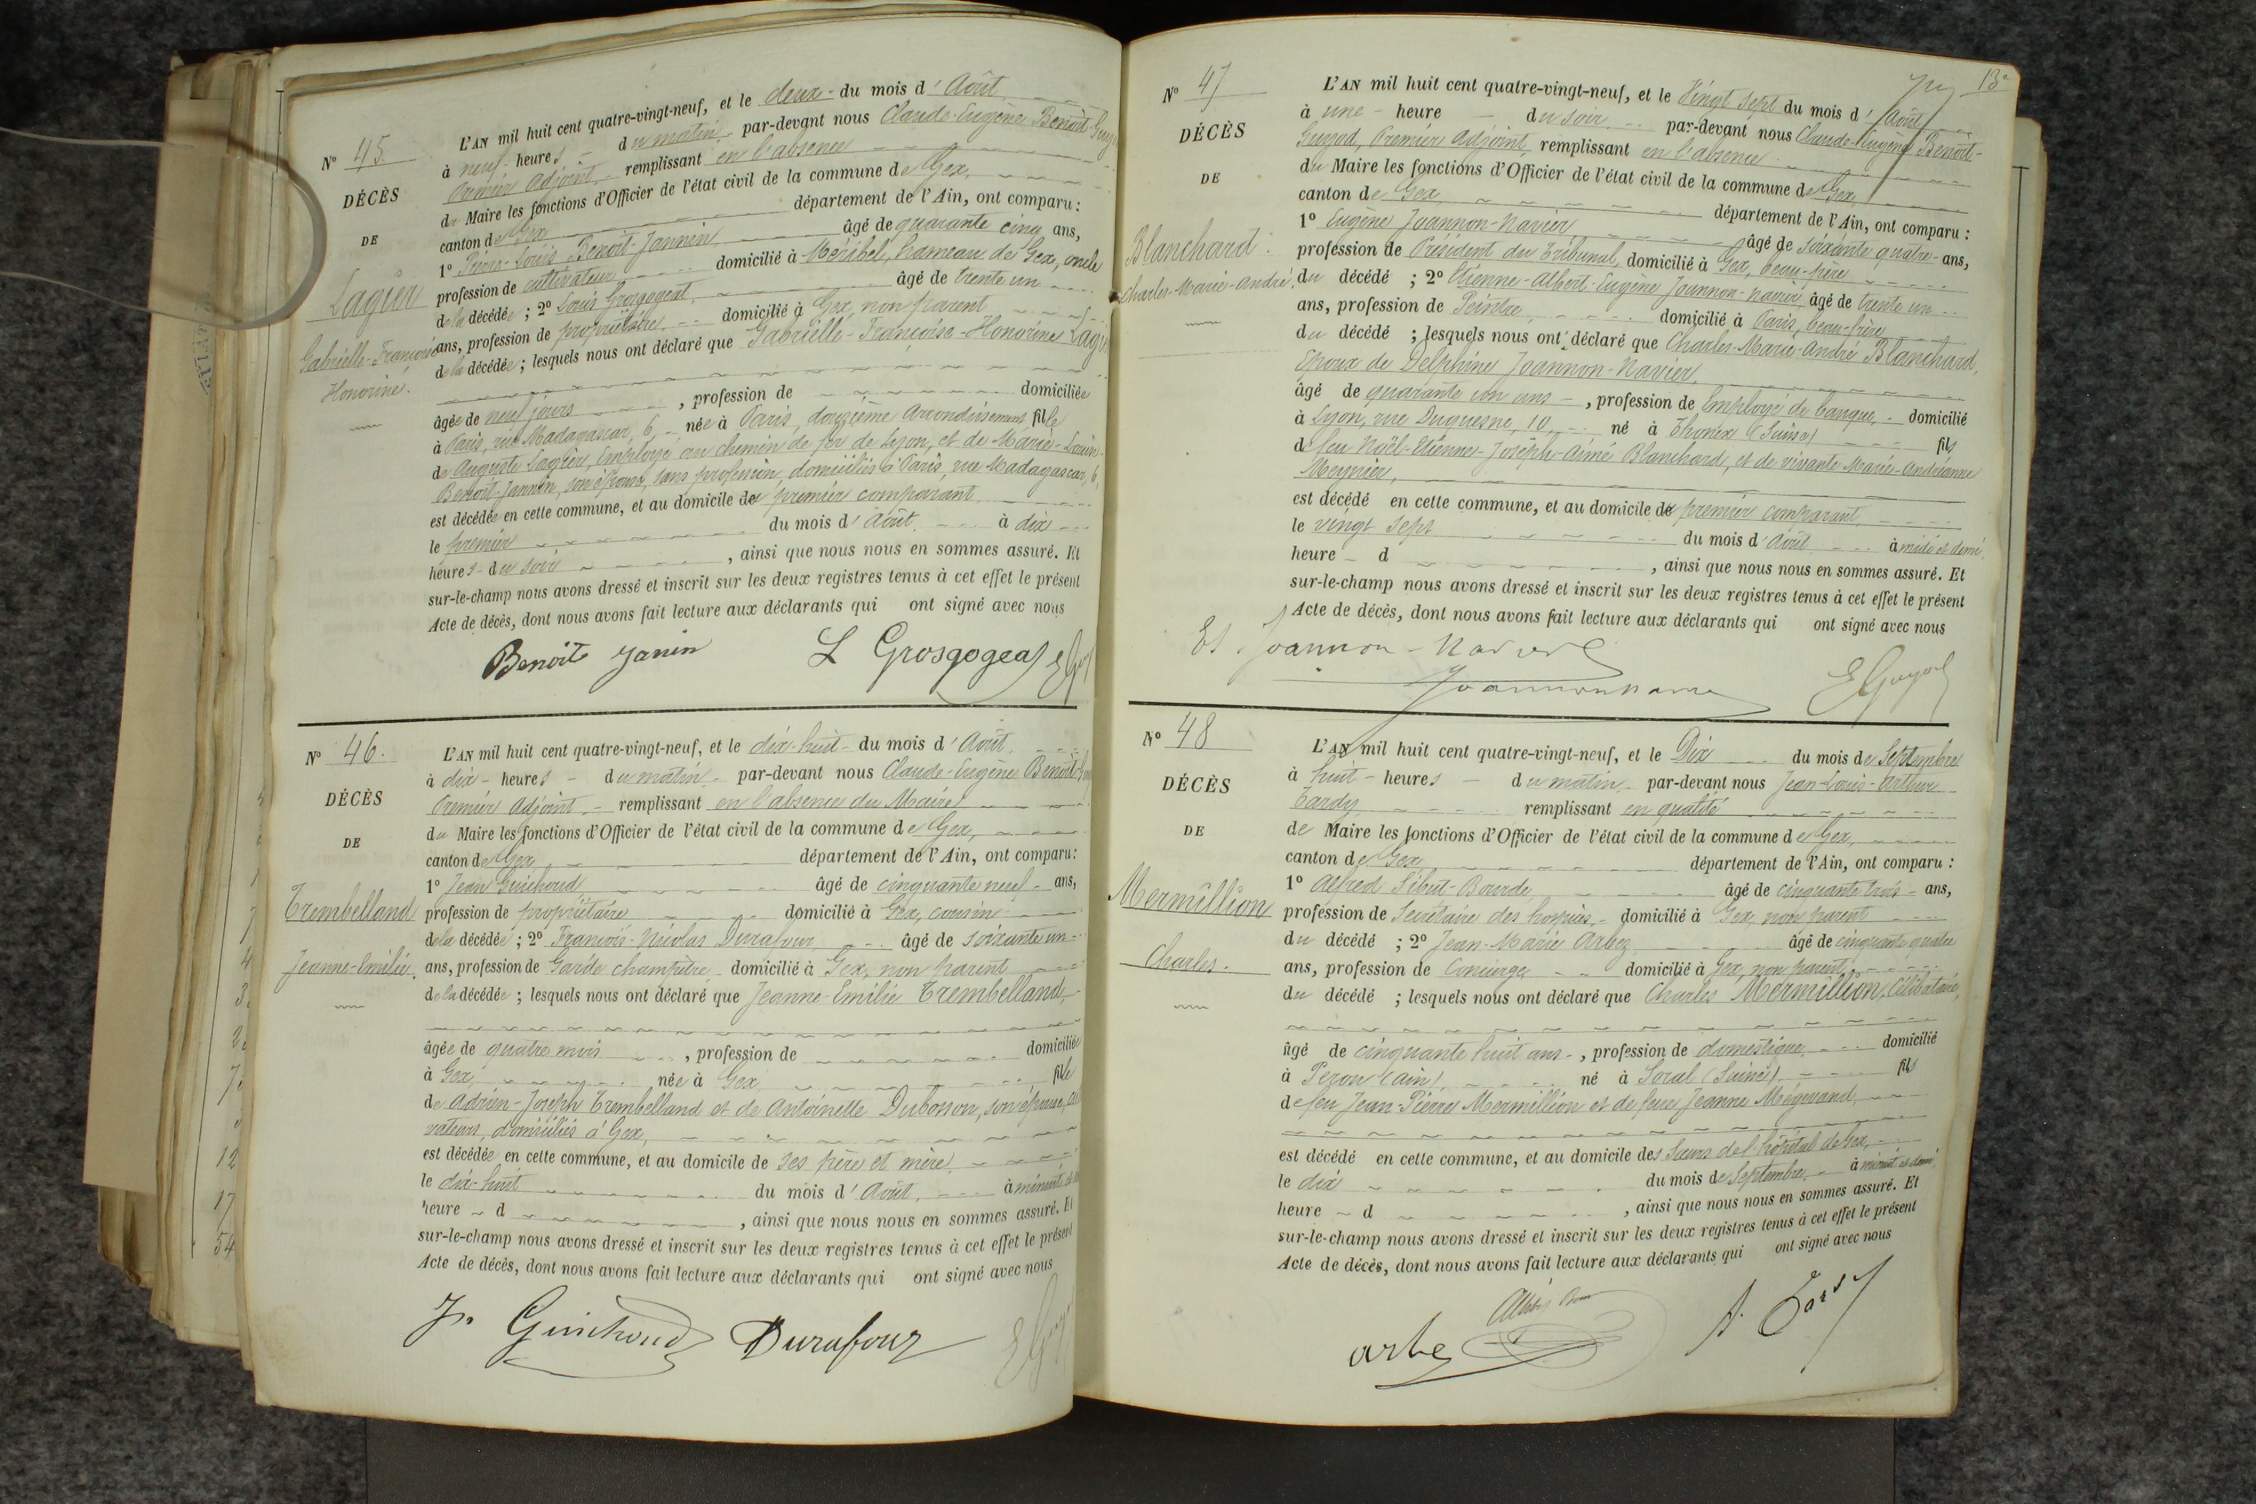 N° 45
DÉCÈS
DE
Lagier
Gabrielle-Françoise
Honorine.
L'AN mil huit cent quatre-vingt-neuf, et le deux du mois d'Août
à neuf heures du matin par-devant nous Claude-Eugène Benoit-Guyod
Premier Adjoint remplissant en l'absence
du Maire les fonctions d'Officier de l'état civil de la commune de Gex,
canton de Gex département de l'Ain, ont comparu :
1° Pierre-Louis Benoit-Jannin âgé de quarante cinq ans,
profession de cultivateur domicilié à Méribel, hameau de Gex, oncle
de la décédée ; 2° Louis Grosgogeat âgé de trente un
ans, profession de propriétaire domicilié à Gex, non parent
de la décédée ; lesquels nous ont déclaré que Gabrielle-Françoise-Honorine Lagier
âgée de neuf jours , profession de domiciliée
à Paris, rue Madagascar, 6, née à Paris, douzième arrondissement fille
de Auguste Lagier, employé au chemin de fer de Lyon, et de Marie-Louise
Benoit-Jannin, son épouse, sans profession, domiciliés à Paris, rue Madagascar, 6,
est décédée en cette commune, et au domicile du premier comparant
le premier du mois d'Août à dix
heures du soir , ainsi que nous nous en sommes assuré. Et
sur-le-champ nous avons dressé et inscrit sur les deux registres tenus à cet effet le présent
Acte de décès, dont nous avons fait lecture aux déclarants qui ont signé avec nous
Benoit Janin L Grosgogeat
N° 46.
DÉCÈS
DE
Trembelland
Jeanne-Emilie.
L'AN mil huit cent quatre-vingt-neuf, et le dix-huit du mois d'Août
à dix heures du matin par-devant nous Claude-Eugène Benoit-Guyod
Premier Adjoint remplissant en l'absence du Maire
du Maire les fonctions d'Officier de l'état civil de la commune de Gex,
canton de Gex département de l'Ain, ont comparu :
1° Jean Guichoud âgé de cinquante neuf ans,
profession de propriétaire domicilié à Gex, cousin
de la décédée ; 2° François-Nicolas Durafour âgé de soixante un
ans, profession de Garde champêtre domicilié à Gex, non parent
de la décédée ; lesquels nous ont déclaré que Jeanne-Emilie Trembelland,
âgée de quatre mois , profession de domiciliée
à Gex, née à Gex fille
de Adrien-Joseph Trembelland et de Antoinette Dubosson, son épouse, culti
vateurs, domiciliés à Gex,
est décédée en cette commune, et au domicile de ses père et mère
le dix-huit du mois d'Août à minuit
heure d , ainsi que nous nous en sommes assuré. Et
sur-le-champ nous avons dressé et inscrit sur les deux registres tenus à cet effet le présent
Acte de décès, dont nous avons fait lecture aux déclarants qui ont signé avec nous
Jn Guichoud Durafour
13
N° 47
DÉCÈS
DE
Blanchard
Charles-Marie-André.
L'AN mil huit cent quatre-vingt-neuf, et le Vingt sept du mois d'Août
à une heure du soir par-devant nous Claude-Eugène Benoit-
Guyod, Premier Adjoint, remplissant en l'absence
du Maire les fonctions d'Officier de l'état civil de la commune de Gex,
canton de Gex département de l'Ain, ont comparu :
1° Eugène Joannon-Navier âgé de soixante quatre ans,
profession de Président du Tribunal, domicilié à Gex, beau-père
du décédé ; 2° Etienne-Albert-Eugène Joannon-Navier âgé de trente un
ans, profession de Peintre domicilié à Paris, beau-frère
du décédé ; lesquels nous ont déclaré que Charles-Marie-André Blanchard,
Epoux de Delphine Joannon-Navier,
âgé de quarante un ans , profession de Employé de banque, domicilié
à Lyon, rue Duquesne, 10 né à Thonex (Suisse) fils
de feu Noël-Etienne-Joseph-Aimé Blanchard, et de vivante Marie-Andréanne
Meynier,
est décédé en cette commune, et au domicile du premier comparant
le vingt sept du mois d'Août à midi et demi
heure d , ainsi que nous nous en sommes assuré. Et
sur-le-champ nous avons dressé et inscrit sur les deux registres tenus à cet effet le présent
Acte de décès, dont nous avons fait lecture aux déclarants qui ont signé avec nous
Et. Joannon-Navier
Joannon Navier E Guyod
N° 48
DÉCÈS
DE
Mermillion
Charles.
L'AN mil huit cent quatre-vingt-neuf, et le Dix du mois de Septembre
à huit heures du matin par-devant nous Jean-Louis-Arthur
Tardy remplissant en qualité
de Maire les fonctions d'Officier de l'état civil de la commune de Gex,
canton de Gex département de l'Ain, ont comparu :
1° Alfred Sibut-Bourde âgé de cinquante trois ans,
profession de Secrétaire des hospices domicilié à Gex, non parent
du décédé ; 2° Jean-Marie Arbez âgé de cinquante quatre
ans, profession de Concierge domicilié à Gex, non parent
du décédé ; lesquels nous ont déclaré que Charles Mermillion, Célibataire,
âgé de cinquante huit ans , profession de domestique domicilié
à Peron (Ain) né à Soral (Suisse) fils
de feu Jean-Pierre Mermillion et de feue Jeanne Mégevand
est décédé en cette commune, et au domicile des Sœurs de l'hôpital de Gex,
le dix du mois de Septembre à minuit et demi
heure d , ainsi que nous nous en sommes assuré. Et
sur-le-champ nous avons dressé et inscrit sur les deux registres tenus à cet effet le présent
Acte de décès, dont nous avons fait lecture aux déclarants qui ont signé avec nous
Arbez A. Tardy